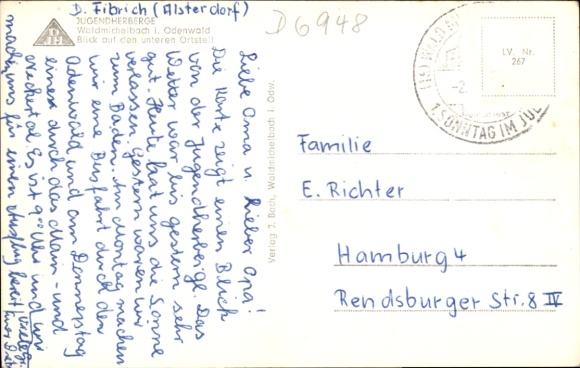 D. Fibrich (Alsterdorf)
D6948
JUGENDHERBERGE
Waldmichelbach i. Odenwald
Blick auf den unteren Ortsteil
DJH
LV. Nr.
267
1. SONNTAG IM JUL
Liebe Oma u. lieber Opa!
Die Karte zeigt einen Blick
von der Jugendherberge. Das
Wetter war bis gestern sehr
gut. Heute hat uns die Sonne
verlassen. Gestern waren wir
zum Baden. Am Montag machen
wir eine Busfahrt durch den
Odenwald und am Donnerstag
eine durch das Main- und
Neckartal. Es ist 9 Uhr und wir
machen uns für einen Ausflug bereit.
Verlag J. Bach, Waldmichelbach i. Odw.
Familie
E. Richter
Hamburg 4
Rendsburger Str. 8 IV